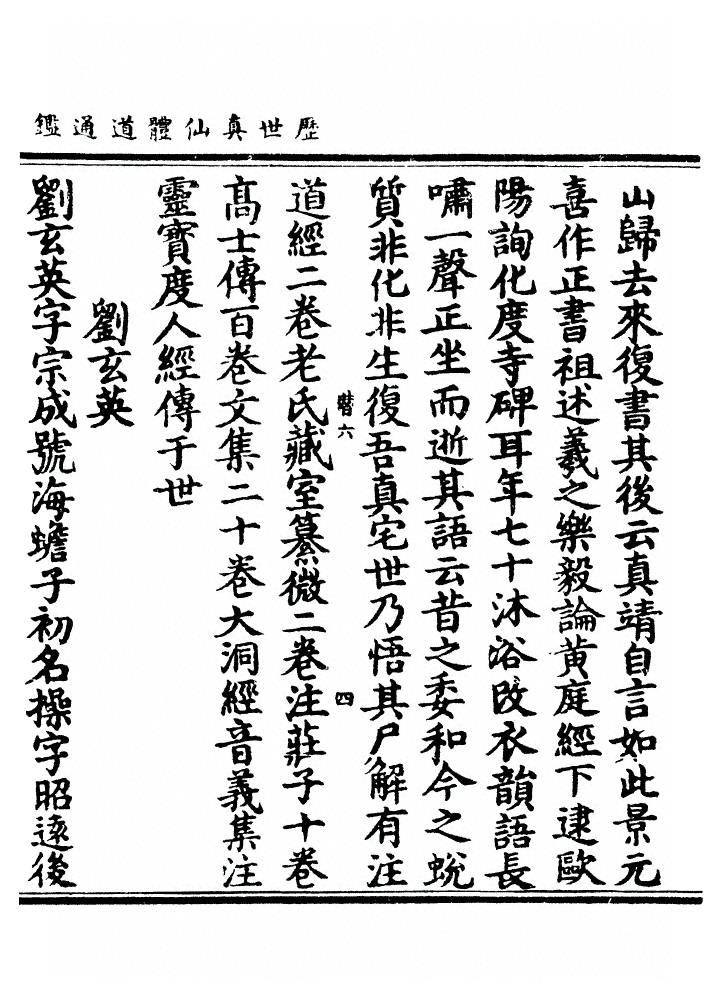 歷世真仙體道通鑑
山歸去來復書其後云真靖自言如此景元
喜作正書祖述羲之樂毅論黃庭經下逮歐
陽詢化度寺碑耳年七十沐浴改衣韻語長
嘯一聲正坐而逝其語云昔之委和今之蛻
質非化非生復吾真宅世乃悟其尸解有注
道經二卷老氏藏室纂微二卷注莊子十卷
高士傳百卷文集二十卷大洞經音義集注
靈寶度人經傳于世
劉玄英
劉玄英字宗成號海蟾子初名操字昭遠後
六
四